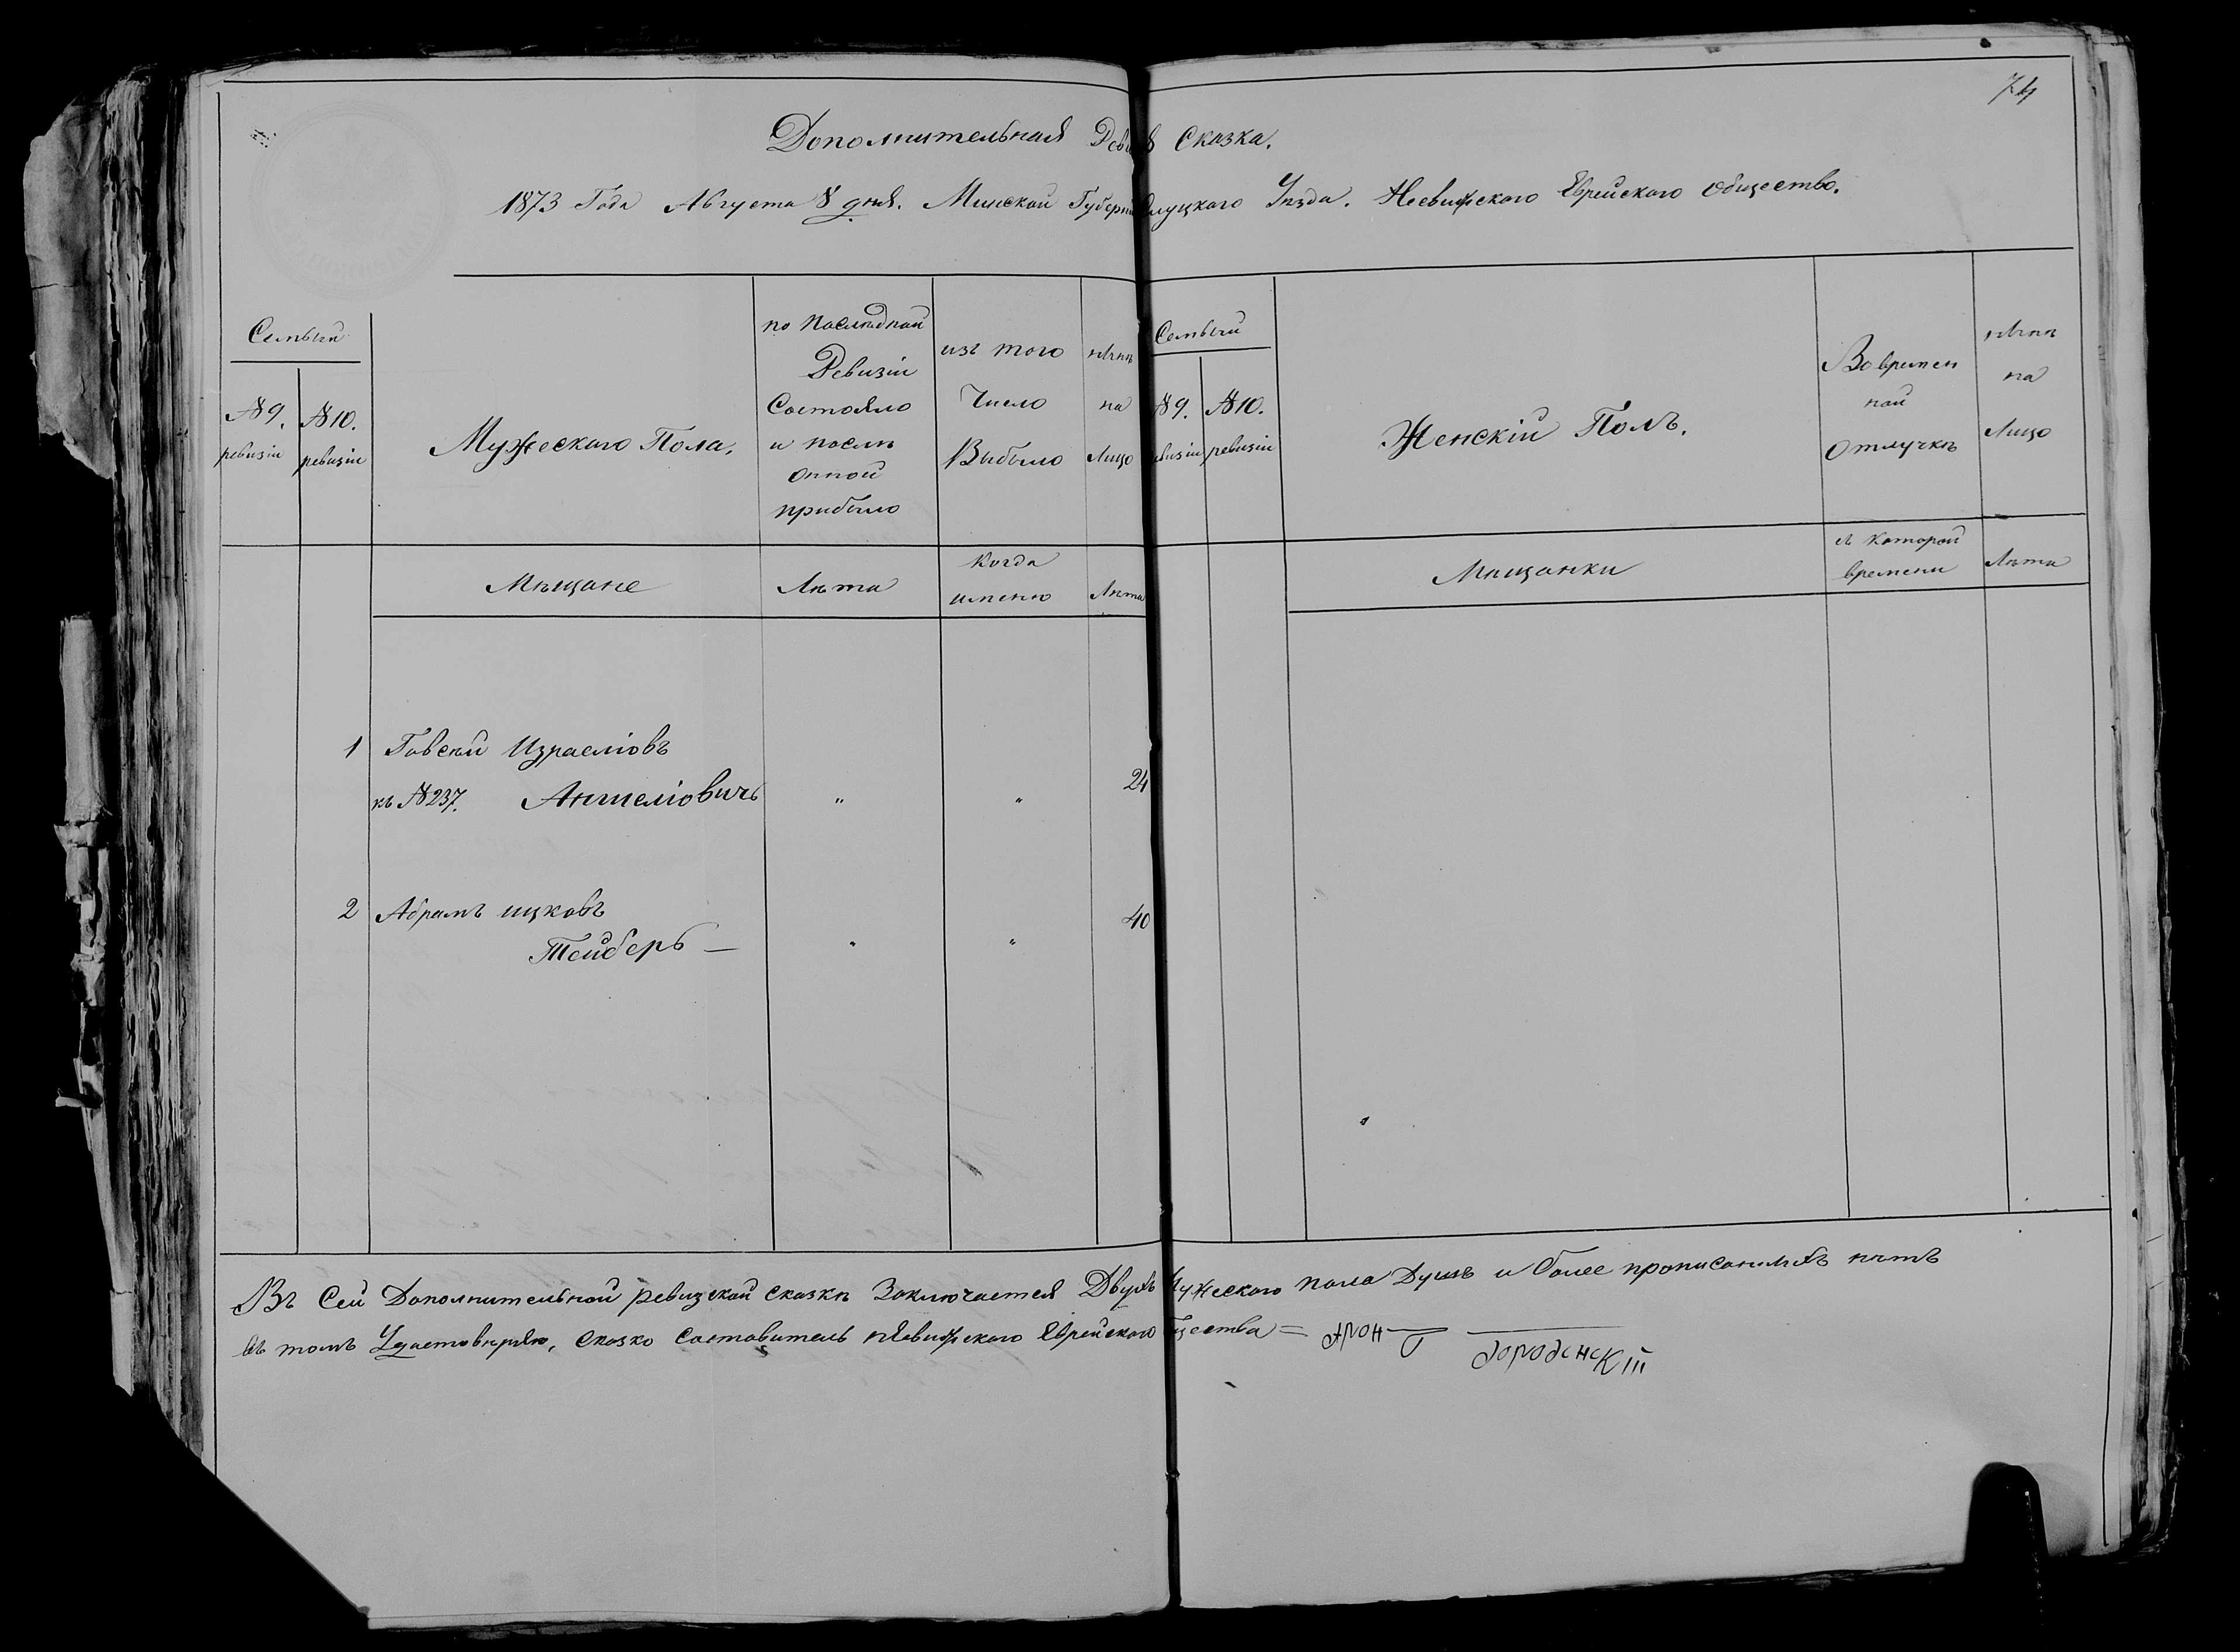 74
Дополнительная Реви Сказка.
1873 Года Августа 8 дня. Минской Губерни Слуцкого Уезда. Несвижского Еврейского Общество.
Семьи
№ 9. ревизіи
№ 10. ревизіи
Мужескаго Пола,
по последней
Ревизіи
Состояло
и после
онной
прибыло
изъ того
Число
Выбыло
ныне
на
Лицо
Семьи
№ 9. ревизіи
№ 10. ревизіи
Женскій Полъ.
Во времен
ной
Отлучке
ныне
на
Лицо
Мѣщане
Лѣта
Когда
именно
Лѣта
Мѣщанки
съ которой
времени
Лѣта
1 Говсей Израеліовъ
къ № 237. Аншеліовичъ " " 24
2 Абрамъ ицковъ 40
Тейберъ — " "
Въ Сей Дополнительной ревизской сказкѣ Заключается Двухъ Мужеского пола Душъ и более прописанныхъ нѣтъ
въ томъ Удостоверяю, Сказко Составитель нѣсвижского Еврейского общества = Арон Городенскій